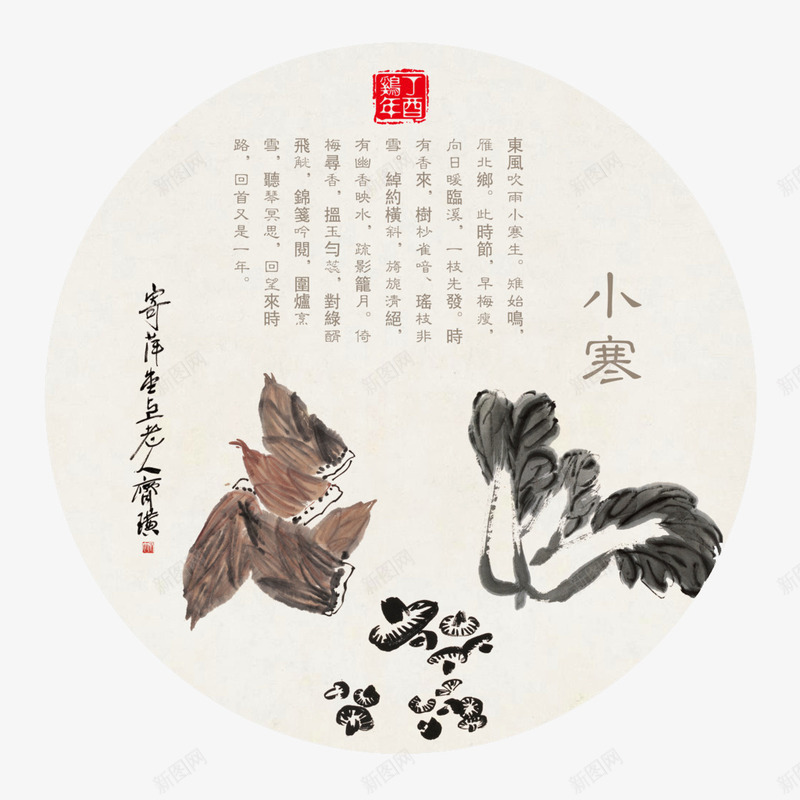 丁酉
鷄年
東風吹雨小寒生。雉始鳴，
雁北鄉。此時節，早梅瘦，
向日暖臨溪，一枝先發。時
有香來，樹杪雀喑、瑤枝非
雪。綽約橫斜，旖旎清絕，
有幽香映水，疏影籠月。倚
梅尋香，搵玉勻蕊，對綠醑
飛觥，錦箋吟閱，圍爐烹
雪，聽琴冥思，回望來時
路，回首又是一年。
小寒
寄萍堂上老人齊璜
新图网